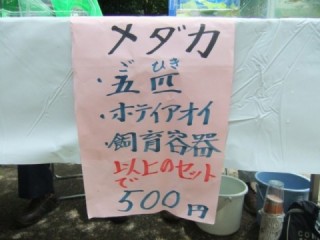 メダカ
ごひき
・五匹
・ホテイアオイ
・飼育容器
以上のセット
で
500円